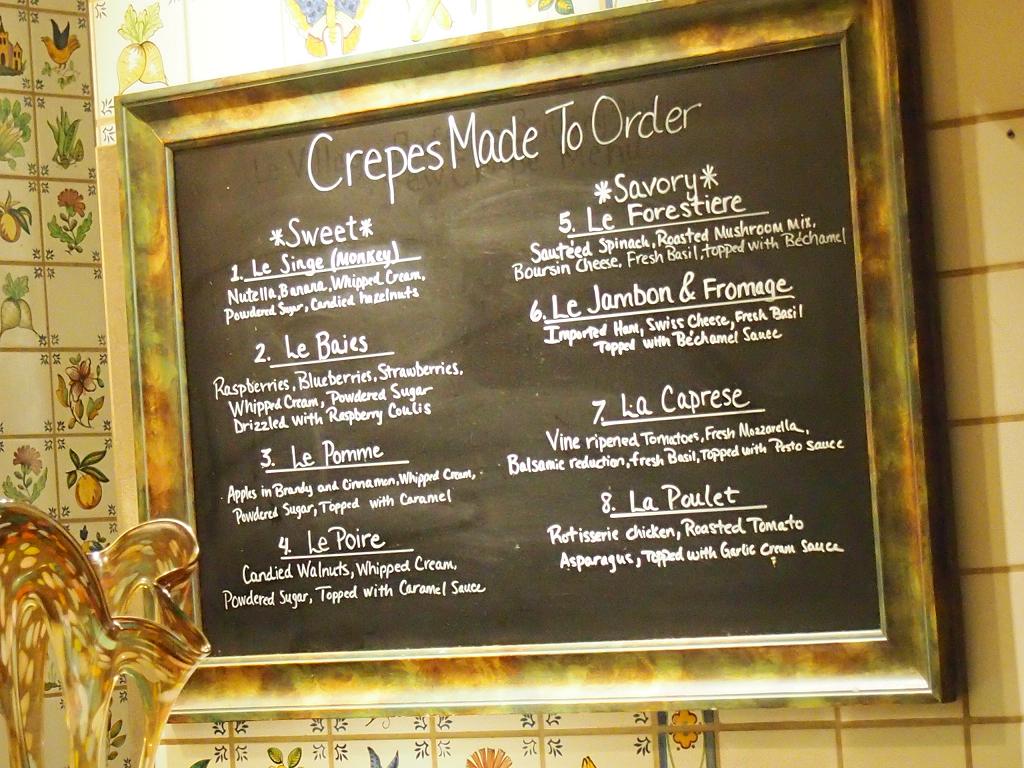 Crepes Made To Order
*Sweet*
1. Le Singe (Monkey)
Nutella, Banana, Whipped Cream,
Powdered Sugar, Candied hazelnuts
2. Le Baies
Raspberries, Blueberries, Strawberries,
Whipped Cream, Powdered Sugar
Drizzled with Raspberry Coulis
3. Le Pomme
Apples in Brandy and Cinnamon, Whipped Cream,
Powdered Sugar, Topped with Caramel
4. Le Poire
Candied Walnuts, Whipped Cream,
Powdered Sugar, Topped with Caramel Sauce
*Savory*
5. Le Forestiere
Sautéed Spinach, Roasted Mushroom Mix,
Boursin Cheese, Fresh Basil, topped with Béchamel
6. Le Jambon & Fromage
Imported Ham, Swiss Cheese, Fresh Basil
Topped with Béchamel Sauce
7. La Caprese
Vine ripened Tomatoes, Fresh Mozzarella,
Balsamic reduction, fresh Basil, Topped with Pesto sauce
8. La Poulet
Rotisserie chicken, Roasted Tomato
Asparagus, Topped with Garlic Cream Sauce